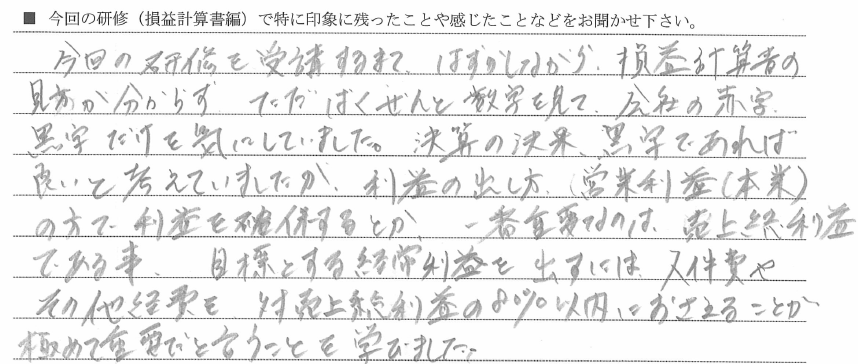 ■ 今回の研修（損益計算書編）で特に印象に残ったことや感じたことなどをお聞かせ下さい。
今回の研修を受講するまで、はずかしながら、損益計算書の
見方が分からず、ただばくぜんと数字を見て、会社の赤字、
黒字だけを気にしていました。決算の決果、黒字であれば
良いと考えていましたが、利益の出し方、（営業利益（本業）
の方で利益を確保するとか、一番重要なのは、売上総利益
である事、目標とする経常利益を出すには人件費や
その他経費を対売上総利益の80%以内におさえることが
極めて重要だと言うことを学びました。